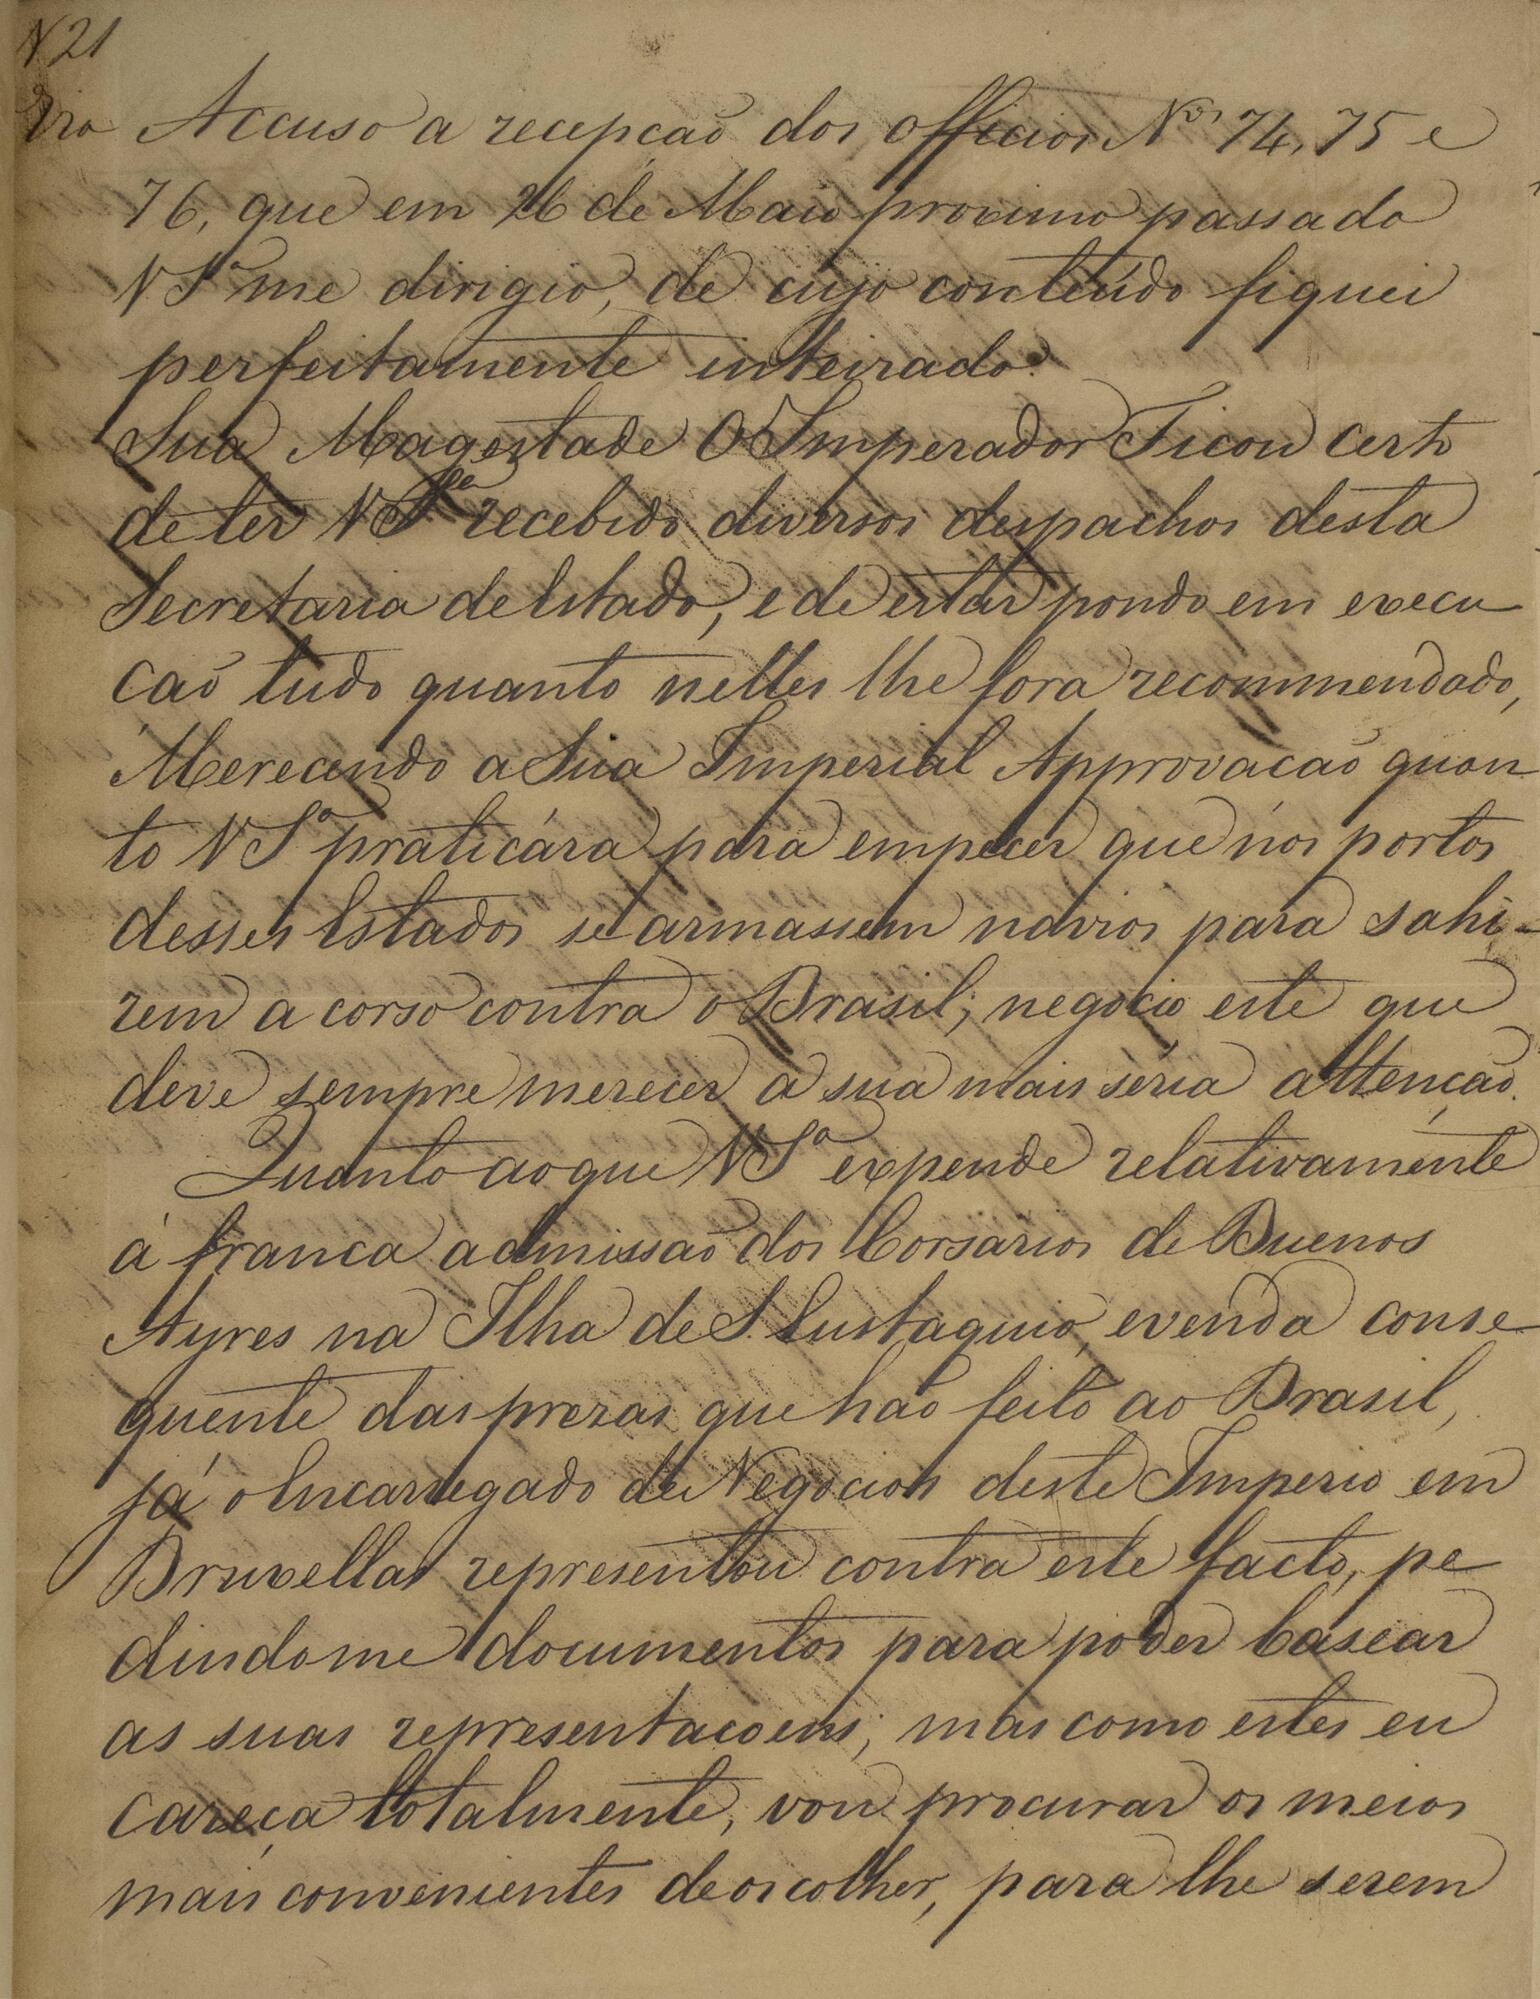 N 21
Accuso a recepcaõ dos officios Nos 74, 75 e
76, que em 26 de Maio proximo passado
V Sª me dirigio, de cujo conteúdo fiquei
perfeitamente inteirado.
Sua Magestade O Imperador Ficou certo
de ter V Sª recebido diversos despachos desta
Secretaria de Estado, e de estar pondo em execu
caõ tudo quanto nelles lhe fora recommendado,
Merecendo a Sua Imperial Approvacaõ quan
to V Sª praticára para empecer que nos portos
desses Estados se armassem navios para sahi-
rem a corso contra o Brasil; negocio este que
deve sempre merecer a sua mais séria attenção.
Quanto ao que V Sª expende relativamente
á franca admissaõ dos Corsarios de Buenos
Ayres na Ilha de S. Eustaquio, e venda conse
quente das prezas que haõ feito ao Brasil,
já o Encarregado de Negocios deste Imperio em
Bruxellas representou contra este facto, pe
dindo me documentos para poder basear
as suas representacoens; mas como estes eu
careça totalmente, vou procurar os meios
mais convenientes de os colher, para lhe serem